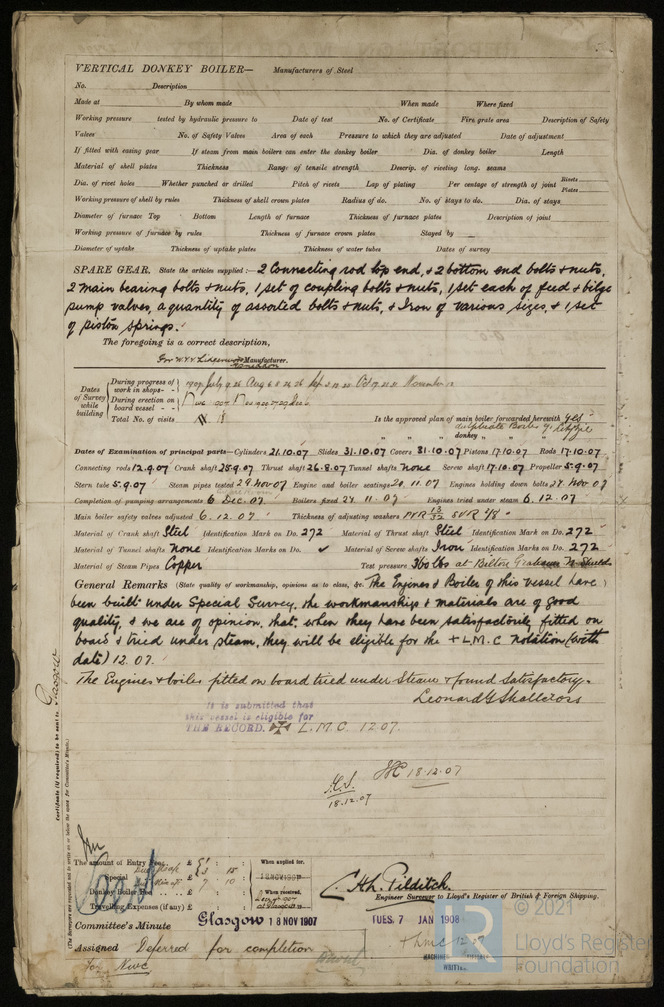 VERTICAL DONKEY BOILER— Manufacturers of Steel
No. Description
Made at By whom made When made Where fixed
Working pressure tested by hydraulic pressure to Date of test No. of Certificate Fire grate area Description of Safety
Valves No. of Safety Valves Area of each Pressure to which they are adjusted Date of adjustment
If fitted with easing gear If steam from main boilers can enter the donkey boiler Dia. of donkey boiler Length
Material of shell plates Thickness Range of tensile strength Descrip. of riveting long. seams
Dia. of rivet holes Whether punched or drilled Pitch of rivets Lap of plating Per centage of strength of joint Rivets Plates
Working pressure of shell by rules Thickness of shell crown plates Radius of do. No. of stays to do. Dia. of stays
Diameter of furnace Top Bottom Length of furnace Thickness of furnace plates Description of joint
Working pressure of furnace by rules Thickness of furnace crown plates Stayed by
Diameter of uptake Thickness of uptake plates Thickness of water tubes Dates of survey
SPARE GEAR. State the articles supplied:— 2 Connecting rod top end, & 2 bottom end bolts & nuts,
2 main bearing bolts & nuts, 1 set of coupling bolts & nuts, 1 set each of feed & bilge
pump valves, a quantity of assorted bolts & nuts, & Iron of various sizes, & 1 set
of piston springs.
The foregoing is a correct description,
Manufacturer.
Dates of Survey while building
During progress of work in shops- - 1907 July 9 Aug 6 Sep Oct November
During erection on board vessel - - -
Total No. of visits
Is the approved plan of main boiler forwarded herewith Yes
" " " donkey " " "
Dates of Examination of principal parts— Cylinders 21.10.07 Slides 31.10.07 Covers 31.10.07 Pistons 17.10.07 Rods 17.10.07
Connecting rods 12.9.07 Crank shaft 25.9.07 Thrust shaft 26.8.07 Tunnel shafts None Screw shaft 17.10.07 Propeller 5.9.07
Stern tube 5.9.07 Steam pipes tested 29 Nov 07 Engine and boiler seatings 20.11.07 Engines holding down bolts 27. Nov 07
Completion of pumping arrangements 6 Dec. 07 Boilers fixed 27.11.07 Engines tried under steam 6.12.07
Main boiler safety valves adjusted 6.12.07 Thickness of adjusting washers
Material of Crank shaft Steel Identification Mark on Do. 272 Material of Thrust shaft Steel Identification Mark on Do. 272
Material of Tunnel shafts None Identification Marks on Do. Material of Screw shafts Iron Identification Marks on Do. 272
Material of Steam Pipes Copper Test pressure 360 lbs at
General Remarks (State quality of workmanship, opinions as to class, &c. The Engines & Boiler of this vessel have
been built under Special Survey, the workmanship & materials are of good
quality, & we are of opinion, that, when they have been satisfactorily fitted on
board & tried under steam, they will be eligible for the + L.M.C notation (with
date) 12.07.
The Engines & boiler fitted on board tried under steam & found satisfactory.
Leonard G Shallcross
It is submitted that
this vessel is eligible for
THE RECORD. L.M.C. 12.07.
18.12.07
18.12.07
Certificate (if required) to be sent to Glasgow
(The Surveyors are requested not to write on or below the space for Committee's Minute.)
The amount of Entry Fee £
Special £
Donkey Boiler Fee £
Travelling Expenses (if any) £
When applied for,
When received,
H. Pilditch.
Engineer Surveyor to Lloyd's Register of British & Foreign Shipping.
Committee's Minute Glasgow 18 NOV 1907 TUES. 7 JAN 1908
Assigned Deferred for completion
for Nwc
+ LMC 12.07
WRITTEN
© 2021
Lloyd's Register
Foundation